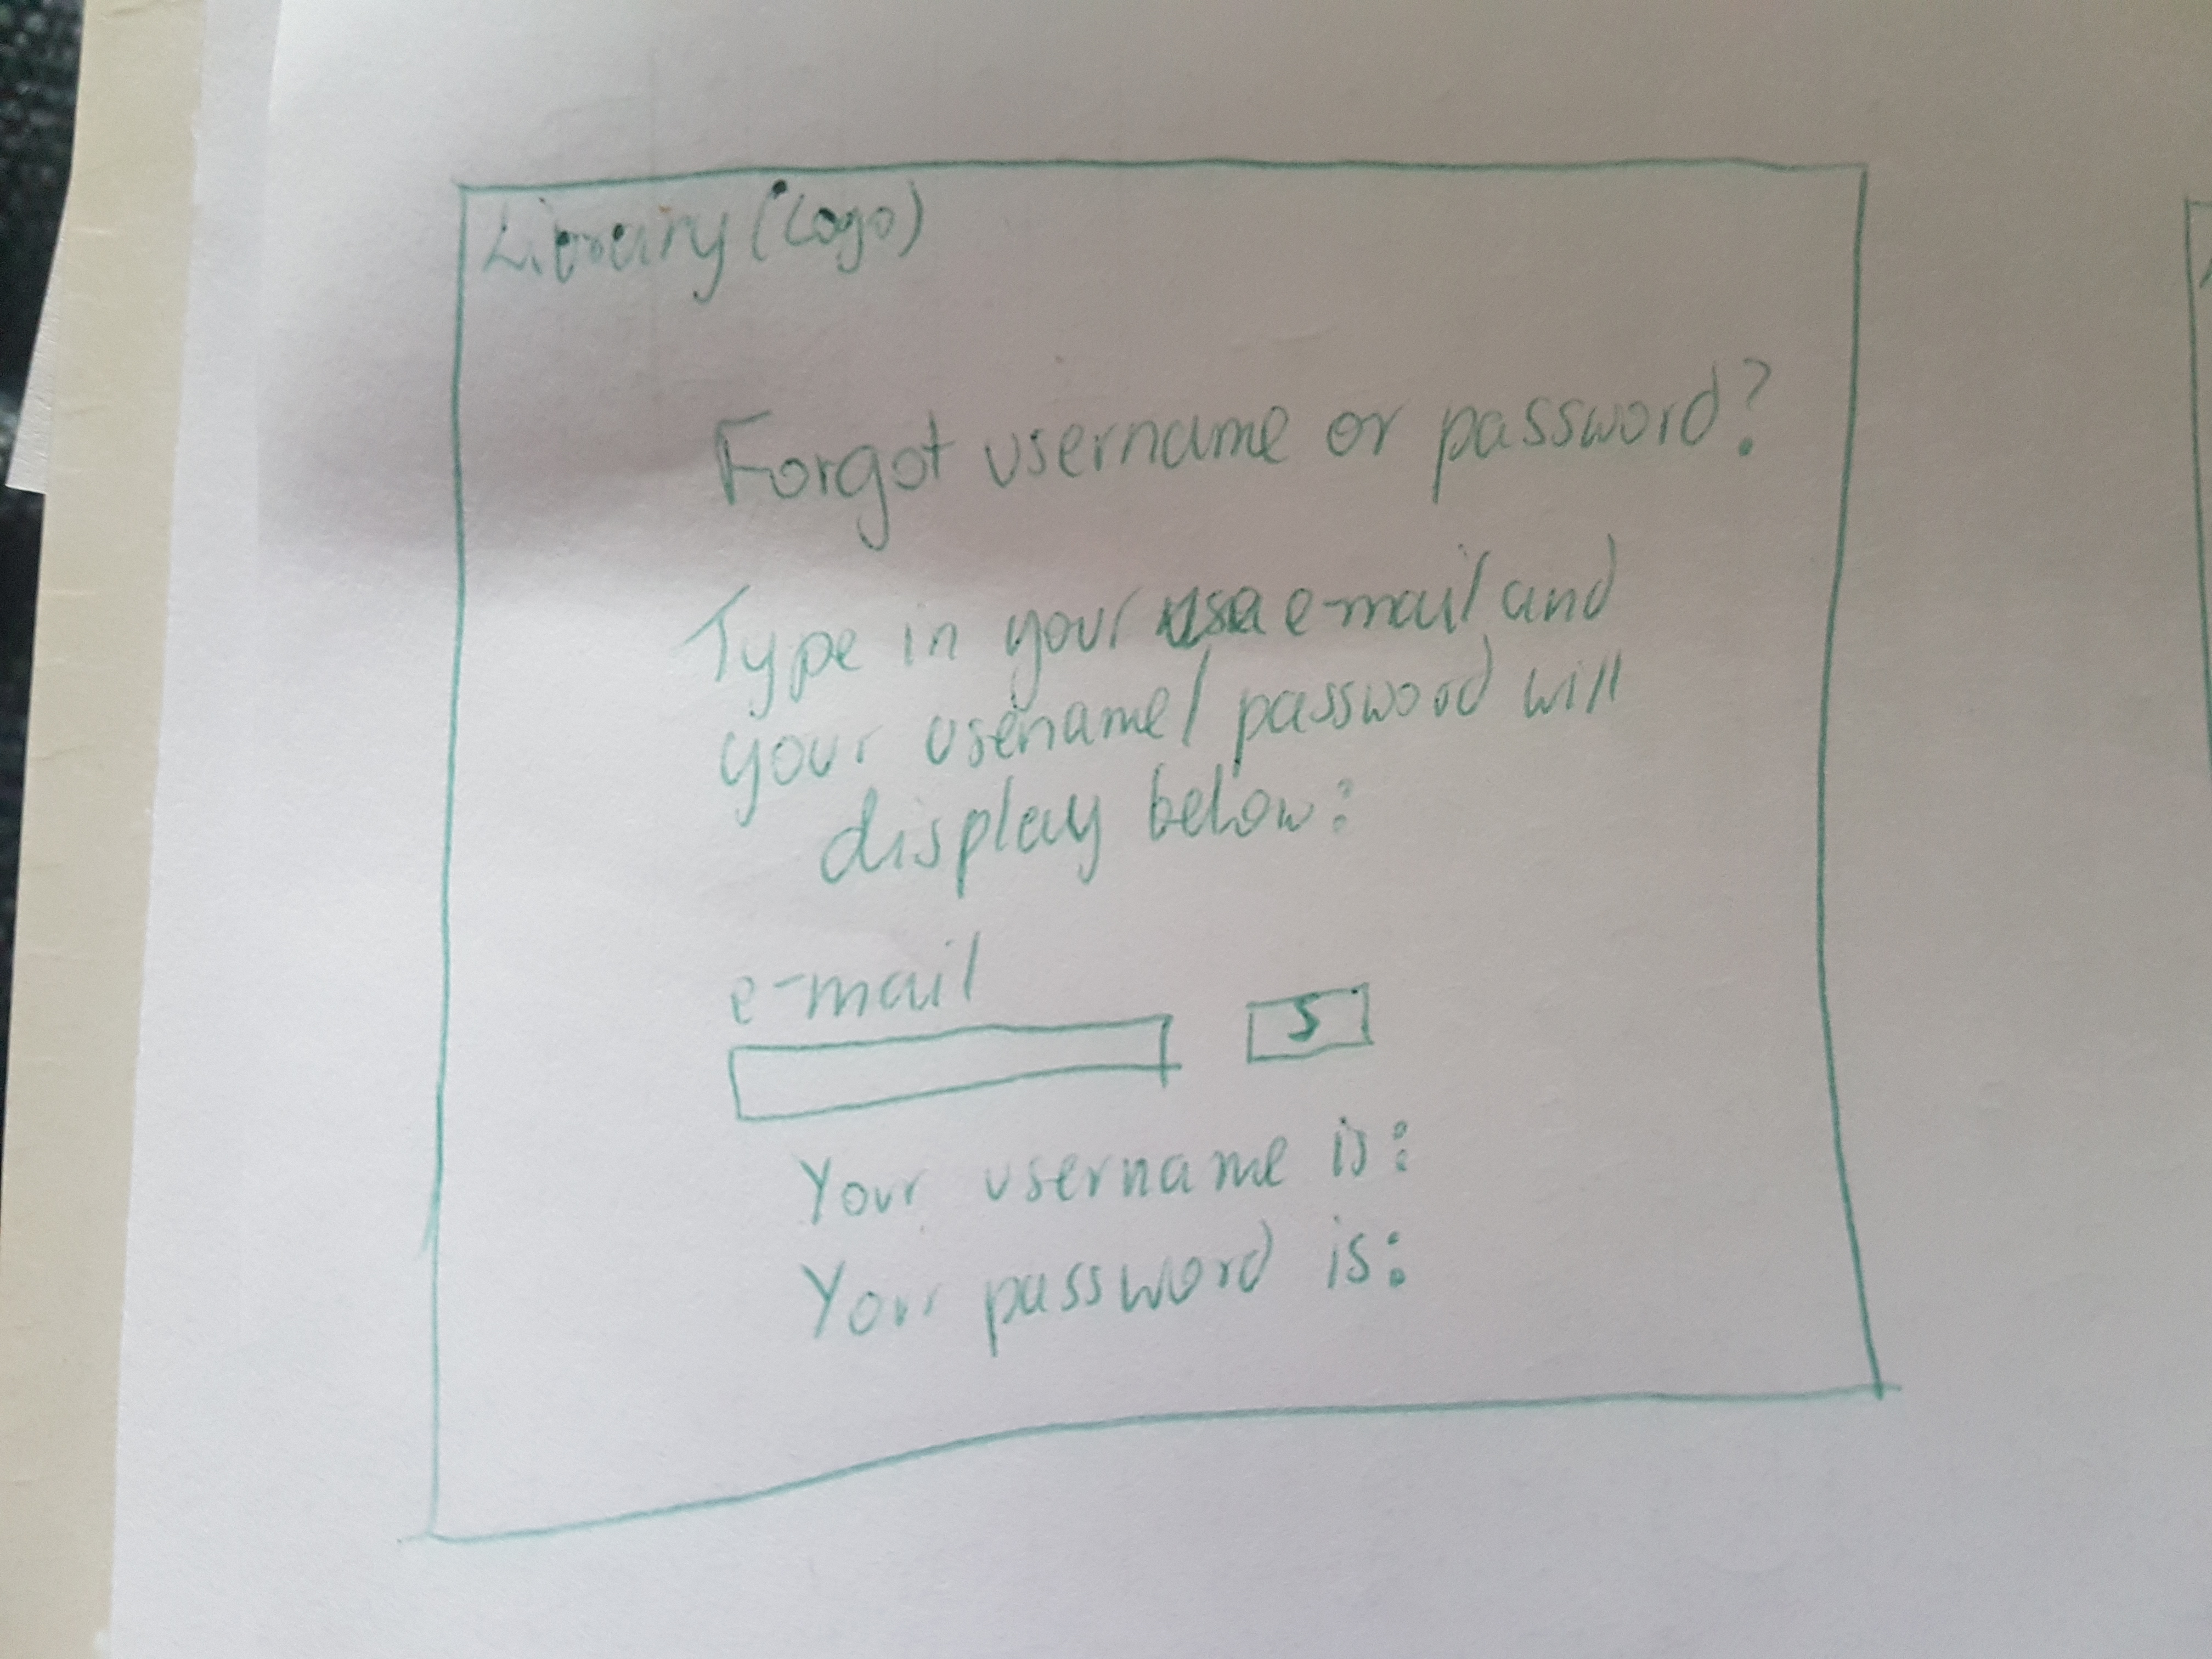 Library (Logo)
Forgot username or password?
Type in your e-mail and
your username/password will
display below:
e-mail
S
Your username is:
Your password is: